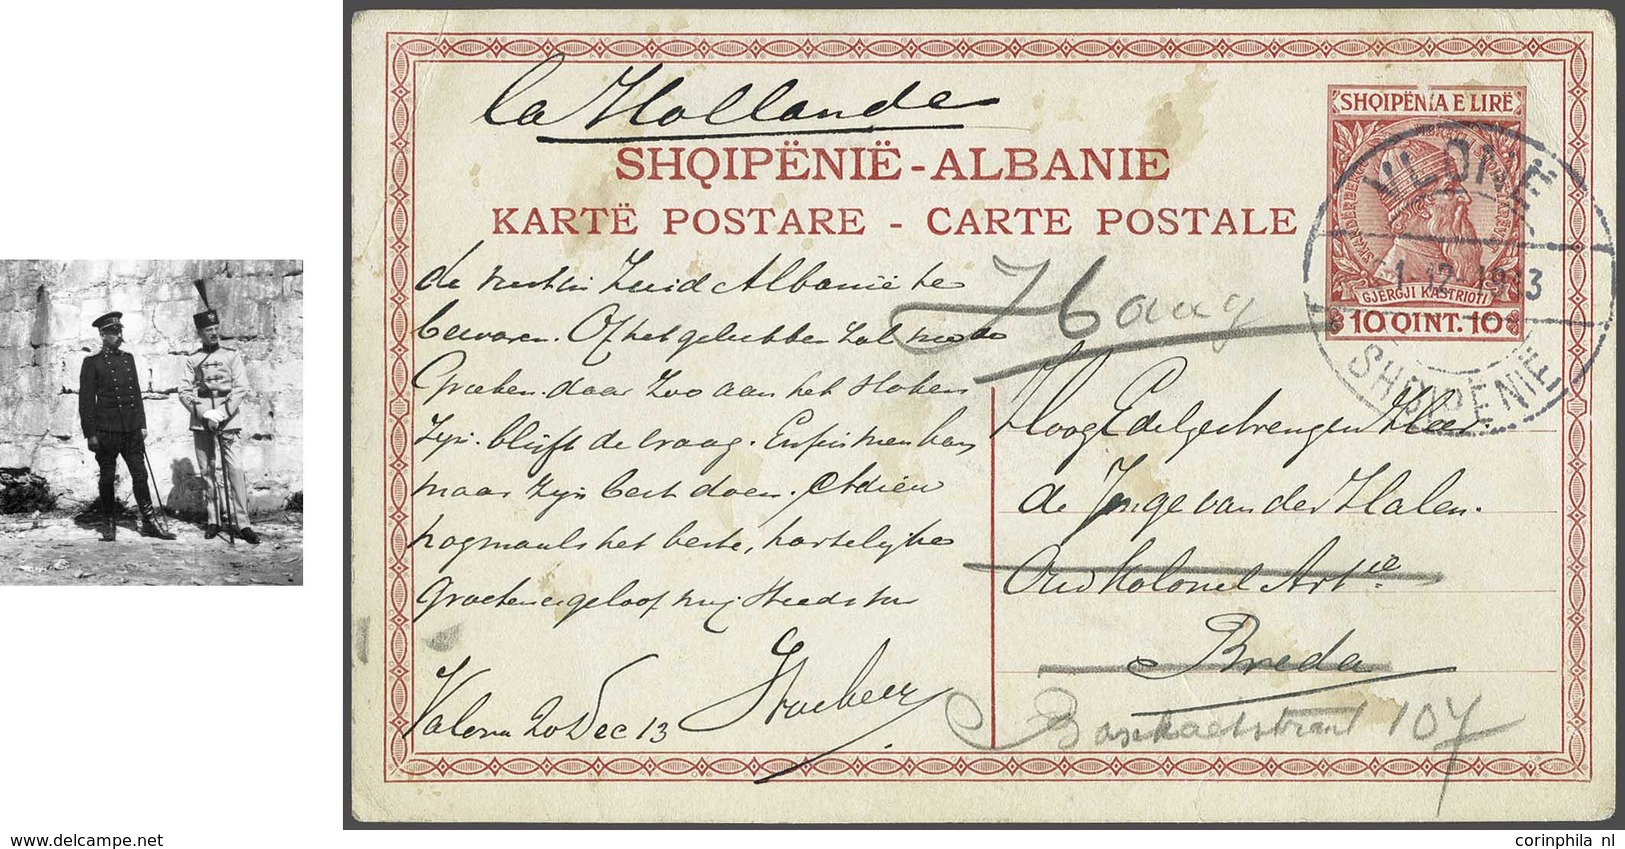 la Hollande
SHQIPËNIË - ALBANIE
KARTË POSTARE - CARTE POSTALE
SHQIPËNIA E LIRË
SKANDERBEK
GJERGJI KASTRIOTI
10 QINT. 10
VLONË
21 12 1913
SHQIPËNIË
Haag
de rust in Zuid Albanië te
bewaren. Of het gelukken zal
Groeten. daar zoo aan het
zijn. blijft de vraag. Enfin men kan
maar zijn best doen. Adieu
nogmaals het beste, hartelijke
Groeten en geloof mij steeds
Valona 20 Dec 13
HoogEdelgestrengen Heer.
de Jonge van der Halen.
Oud Kolonel Artie
Breda
107
corinphila nl